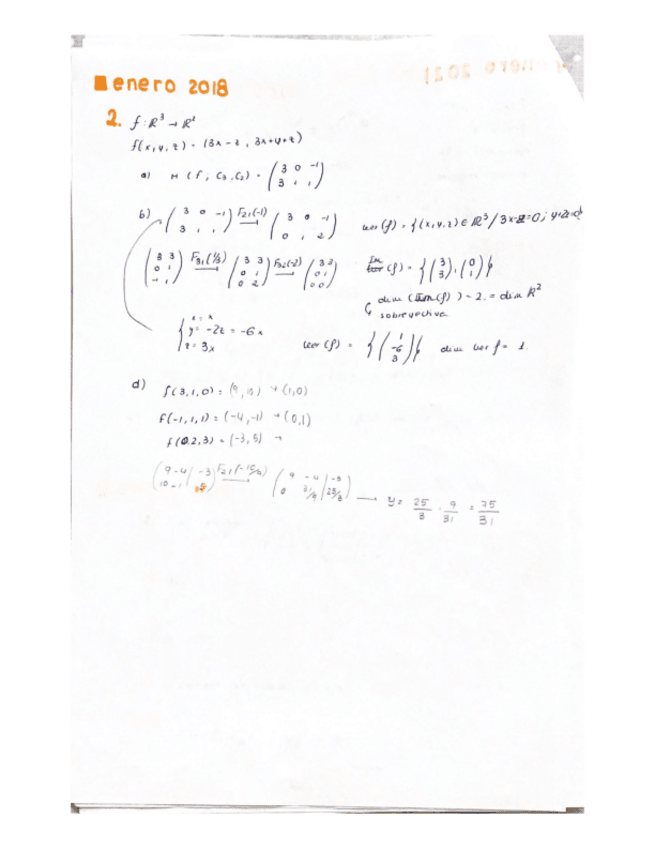 enero 2018
2. f: ℝ³ → ℝ²
f(x,y,z) = (3x-z, 3x+y+z)
a) M(f, C₃, C₂) = (3 0 -1 / 3 1 1)
b) (3 0 -1 / 3 1 1) F₂₁(-1) → (3 0 -1 / 0 1 2) ker(f) = {(x,y,z) ∈ ℝ³ / 3x-z=0; y+2z=0}
(3 3 / 0 1 / -1 1) F₃₁(1/3) → (3 3 / 0 1 / 0 2) F₃₂(-2) → (3 3 / 0 1 / 0 0) Im (f) = {(3 / 3), (0 / 1)}
dim (Im(f)) = 2 = dim ℝ²
sobreyectiva
{x = x / y = -2z = -6x / z = 3x ker(f) = {(1 / -6 / 3)} dim ker f = 1.
d) f(3,1,0) = (9,10) → (1,0)
f(-1,1,1) = (-4,-1) → (0,1)
f(0,2,3) = (-3,5) →
(9 -4 | -3 / 10 -1 | 5) F₂₁(-10/9) → (9 -4 | -3 / 0 31/9 | 25/3) → y = 25/3 · 9/31 = 75/31